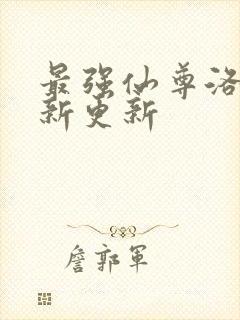 最强仙尊洛
新更新
詹郭军